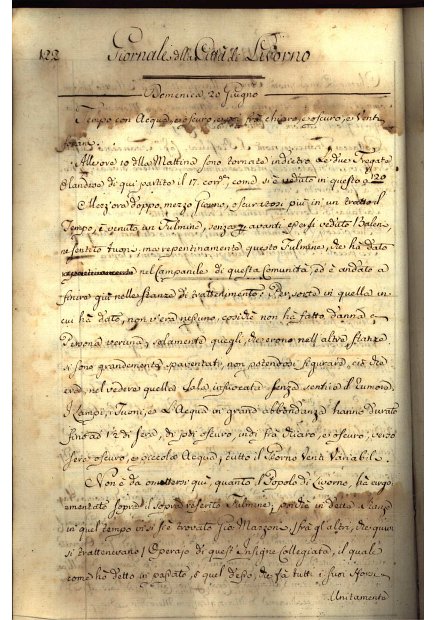 122 Giornale della Città di Livorno
Domenica 20 Giugno
Tempo con Acqua, e oscuro, e poi frà chiaro, e oscuro, e Venti
All'ore 10 della Mattina sono tornate indietro Le due Fregate
Olandesi di qui partite il 17. corr.e, come si è veduto in questo a 120
Mezz'ora doppo mezzo Giorno, oscuritosi più in un tratto il
Tempo, è venuto un Fulmine, senza avanti epersi veduto Balen
ne sentito tuoni, ma repentinamente questo Fulmine, che hà dato
nel Campanile di questa Comunità, ed è andato a
finire giù nelle stanze di trattenimento: Per sorte in quella in
cui hà dato, non v'era nessuno, cosichè non hà fatto danno a
Persona veruna; solamente quegli, che erono nell'altre stanze
si sono grandemente spaventati, non potendosi figurare, ciò che
era, nel vedere quella Sala infuocata senza sentire il Rumore
I Lampi, i Tuoni, e L'Acqua in grand'abbondanza hanno durato
fino a di sera, di poi oscuro, indi frà chiaro, e oscuro, verso
sera oscuro, e piccola Acqua; tutto il Giorno Venti Variabili.
Non è da omettersi qui, quanto il Popolo di Livorno, hà argo-
mentato sopra il sopra riferito Fulmine; poiche in dette Stanze
in quel tempo vi si è trovato frà gl'altri, che quivi
si trattenevano l'Operajo di quest'Insigne Collegiata, il quale
come hò detto in passato è quel desso, che fà tutti i suoi sforzi
Unitamente